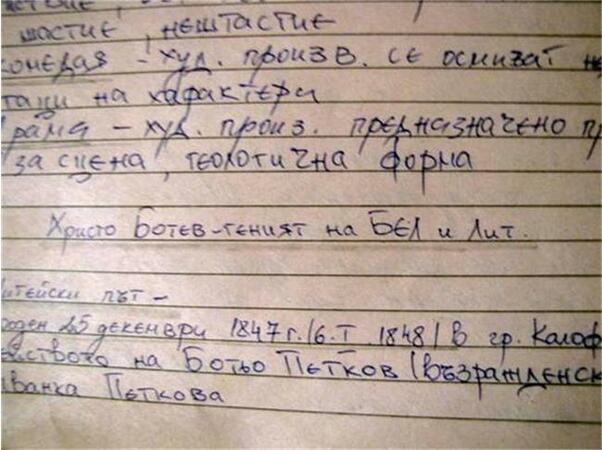 щастие, нещастие
комедия - худ. произв. се осмиват не
тъци на характера
рама - худ. произ. предназначено пр
за сцена, теологична форма
Христо Ботев - геният на БЕЛ и Лит.
итейски път -
роден 25 декември 1847 г. /6.I 1848/ в гр. Калоф
ейството на Ботьо Петков (възрожденск
Иванка Петкова